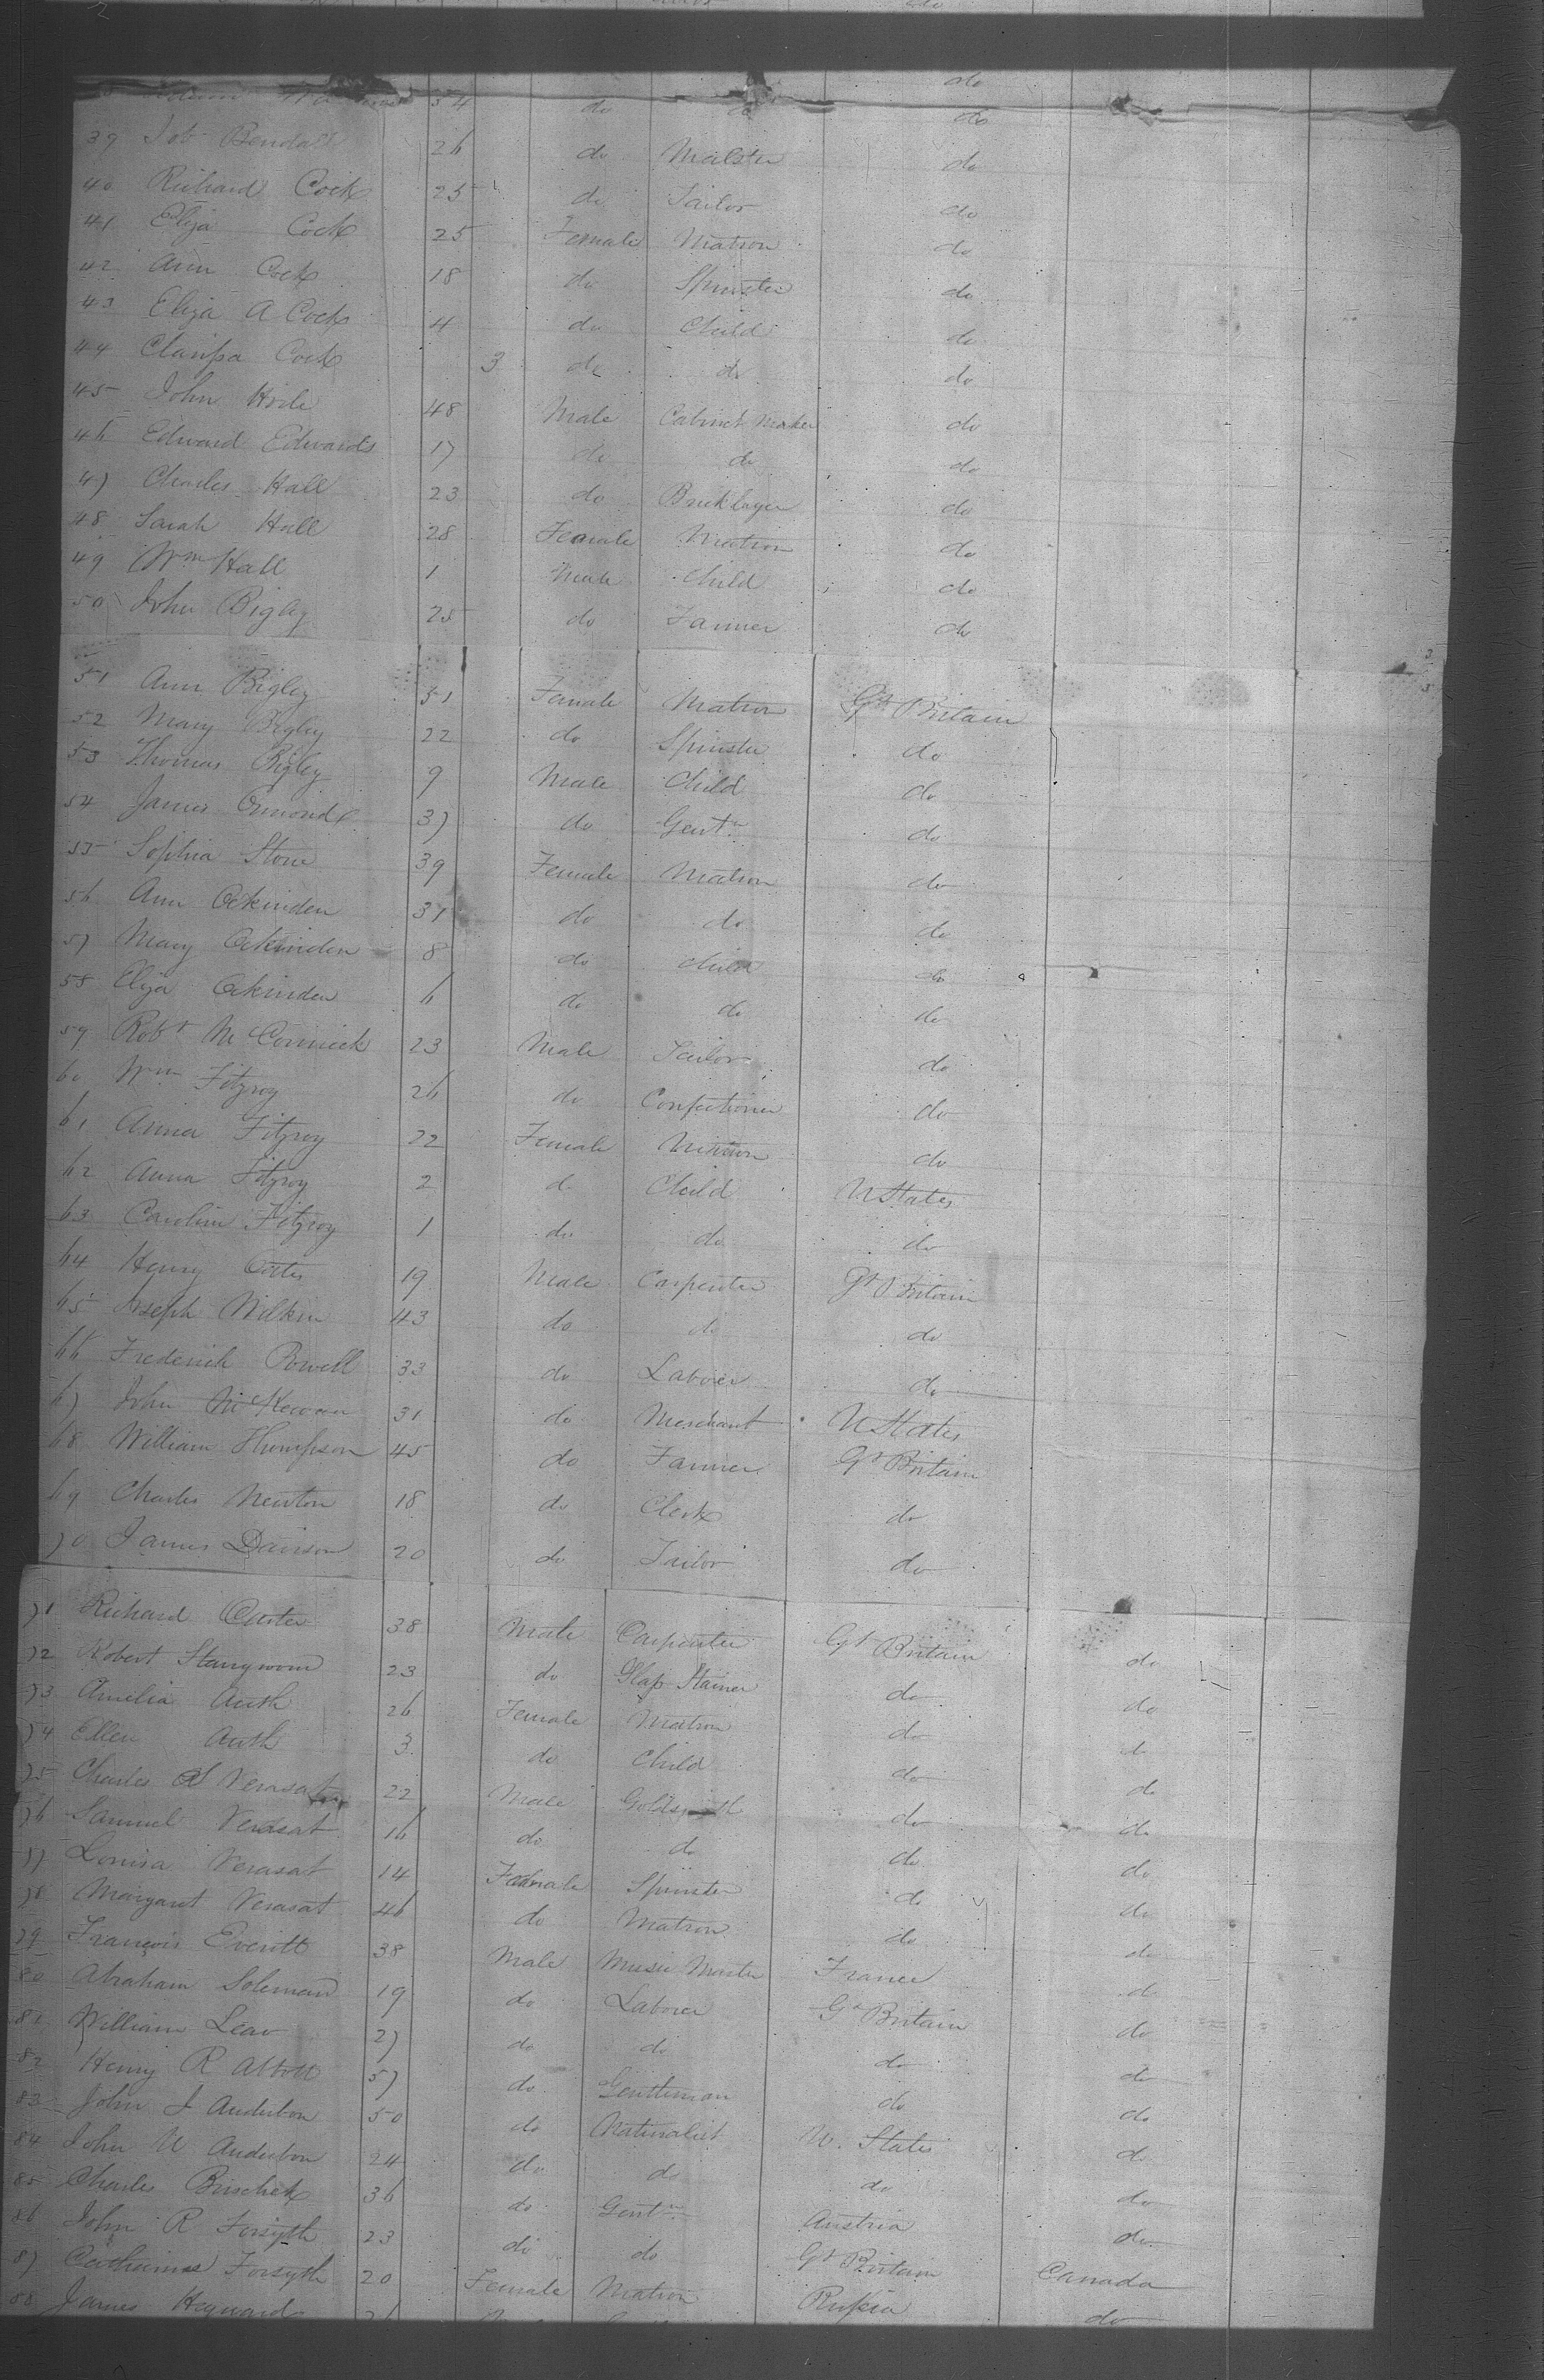 54 do do do
39 Job Bendall 26 do Malster do
40 Richard Cock 25 do Tailor do
41 Eliza Cock 25 Female Matron do
42 Ann Cock 18 do Spinster do
43 Eliza A Cock 4 do Child do
44 Clarissa Cock 3 do do do
45 John Hoile 48 Male Cabinet Maker do
46 Edward Edwards 17 do do do
47 Charles Hall 23 do Bricklayer do
48 Sarah Hall 28 Female Matron do
49 Wm Hall 1 Male Child do
50 John Bigley 25 do Farmer do
51 Ann Bigley 51 Female Matron Gt Britain
52 Mary Bigley 22 do Spinster do
53 Thomas Bigley 9 Male Child do
54 James Ormond 37 do Gentn do
55 Sophia Stone 39 Female Matron do
56 Ann Ockinden 31 do do do
57 Mary Ockinden 8 do Child do
58 Eliza Ockinden 6 do do do
59 Robt McCormick 23 Male Tailor do
60 Wm Fitzroy 26 do Confectioner do
61 Anna Fitzroy 22 Female Matron do
62 Anna Fitzroy 2 do Child U States
63 Carolin Fitzroy 1 do do do
64 Henry Coter 19 Male Carpenter Gt Britain
65 Joseph Wilkin 43 do do do
66 Frederick Powell 33 do Laborer do
67 John McKewan 31 do Merchant U States
68 William Thompson 45 do Farmer Gt Britain
69 Charles Newton 18 do Clerk do
70 James Davison 20 do Tailor do
71 Richard Carter 38 Male Carpenter Gt Britain do
72 Robert 23 do Glass Stainer do do
73 Amelia Auth 26 Female Matron do do
74 Ellen Auth 3 do Child do do
75 Charles Verasat 22 Male Goldsmith do do
76 Samuel Verasat 16 do do do do
77 Louisa Verasat 14 Female Spinster do do
78 Margaret Verasat 46 do Matron do do
79 François Everitt 38 Male Music Master France do
80 Abraham Soleman 19 do Laborer Gt Britain do
81 William Lear 27 do do do do
82 Henry R Abbott 57 do Gentleman do do
83 John J Audubon 50 do Naturalist U. States do
84 John W Audubon 24 do do do do
85 Charles Buschek 36 do Gentn Austria do
86 John R Forsyth 23 do do Gt Britain Canada
87 Catharine Forsyth 20 Female Matron Russia do
88 James Heyward